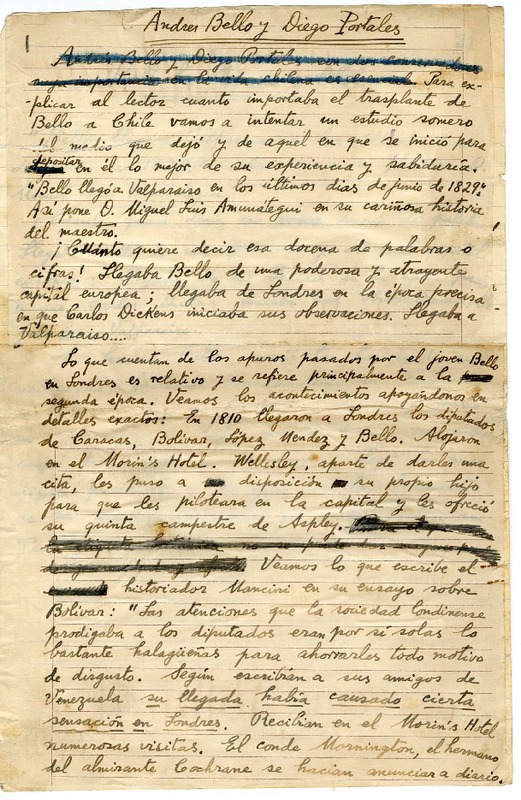 Andres Bello y Diego Portales
1
Andrés Bello y Diego Portales son dos
cuya importancia en la vida chilena es esencial. Para ex-
-plicar al lector cuanto importaba el trasplante de
Bello a Chile vamos a intentar un estudio somero
del medio que dejó y de aquel en que se inició para
depositar en él lo mejor de su experiencia y sabiduría.
"Bello llegó a Valparaíso en los últimos días de junio de 1829".
Así pone D. Miguel Luis Amunátegui en su cariñosa historia
del maestro.
¡Cuánto quiere decir esa docena de palabras o
cifras! Llegaba Bello de una poderosa y atrayente
capital europea; llegaba de Londres en la época precisa
en que Carlos Dickens iniciaba sus observaciones. Llegaba a
Valparaiso....
Lo que cuentan de los apuros pasados por el joven Bello
en Londres es relativo y se refiere principalmente a la
segunda época. Veamos los acontecimientos apoyándonos en
detalles exactos: En 1810 llegaron a Londres los diputados
de Caracas, Bolívar, López Mendez y Bello. Alojaron
en el Morin's Hotel. Wellesley, aparte de darles una
cita, les puso a disposición su propio hijo
para que les piloteara en la capital y les ofreció
su quinta campestre de Aspley.
Veamos lo que escribe el
historiador Mancini en su ensayo sobre
Bolivar: "Las atenciones que la sociedad londinense
prodigaba a los diputados eran por sí solas lo
bastante halagüeñas para ahorrarles todo motivo
de disgusto. Según escribían a sus amigos de
Venezuela su llegada había causado cierta
sensación en Londres. Recibían en el Morin's Hotel
numerosas visitas. El conde Mornington, el hermano
del almirante Cochrane se hacían anunciar a diario.